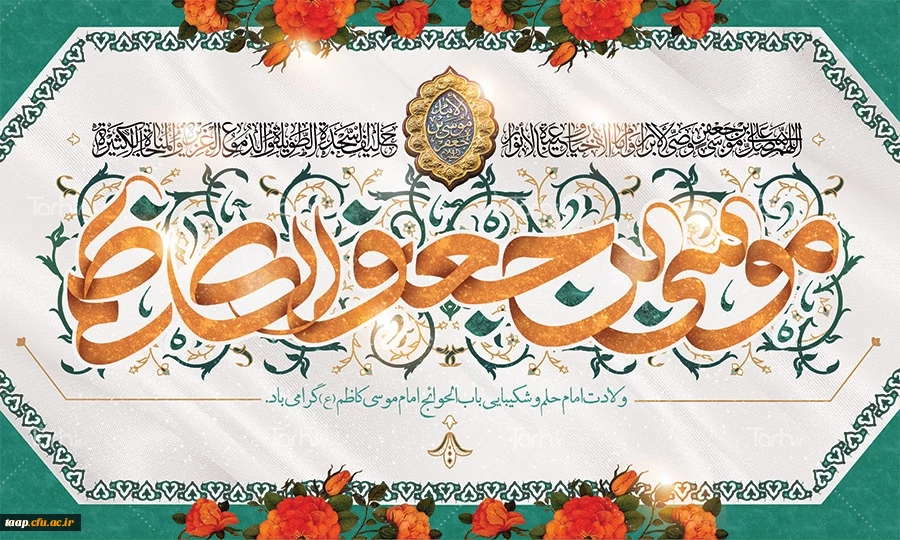 الإمام موسی بن جعفر
اللهم صل علی موسی بن جعفر وصی الأبرار و إمام الأخیار و عیبة الأنوار
حلیف السجدة الطویلة و الدموع الغزیرة و المناجاة الکثیرة
موسی بن جعفر الکاظم
ولادت امام حلم و شکیبایی باب الحوائج امام موسی کاظم (ع) گرامی باد.
taap.cfu.ac.ir